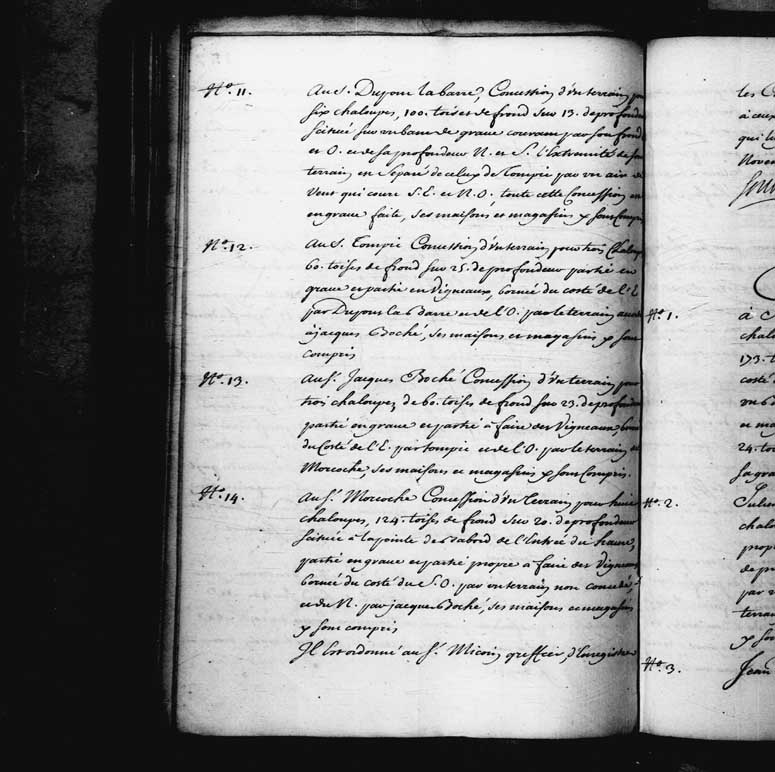 N.º 11. Au S. Dupont la barre, Concession d'un terrain pour
six chaloupes, 100. toises de frond sur 13. de profondeur
scituée sur un banc de grave courant par son frond
et O. et de sa profondeur N. et S. l'Extremité de son
terrain en Separé de celux de Tompic par un air de
Vent qui coure S.E. et N.O. toute cette Concession en
en grave faite, ses maisons et magasins y sont Compris
N.º 12. Au S. Tompic Concession d'un terrain pour trois Chaloupes
60. toises de frond sur 25. de profondeur partie en
grave et partie en Vigneaux, bornée du costé de l'E
par Dupont la Barre et de l'O. par le terrain
à jacques Boché, ses maisons et magasins y sont
compris
N.º 13. Au S.r Jacques Boché Concession d'un terrain pour
trois chaloupes de 60. toises de frond sur 23. de profondeur
partie en grave et partie à faire des Vigneaux,
du Costé de l'E. par tompic et de l'O. par le terrain
Morcoche, ses maisons et magasins y sont Compris.
N.º 14. Au S.r Morcoche Concession d'un Terrain pour huit
chaloupes, 124. toises de frond sur 20. de profondeur
scituée à la pointe de tabord de l'Entrée du havre,
partie en grave et partie propre a faire des Vigneaux
bornée du costé du S.O. par un terrain non concedé,
et du N. par jacques Boché, ses maisons et magasins
y sont compris
Il Est ordonné au S.r Micoin greffier, d'Enregistrer
les
à ceux
qui
Novem
N.º 1. à
chalo
173. t
costé
un b
et ma
24. to
sa gra
N.º 2. Julien
chalo
prop
de pr
par u
terrai
y son
N.º 3. Jean